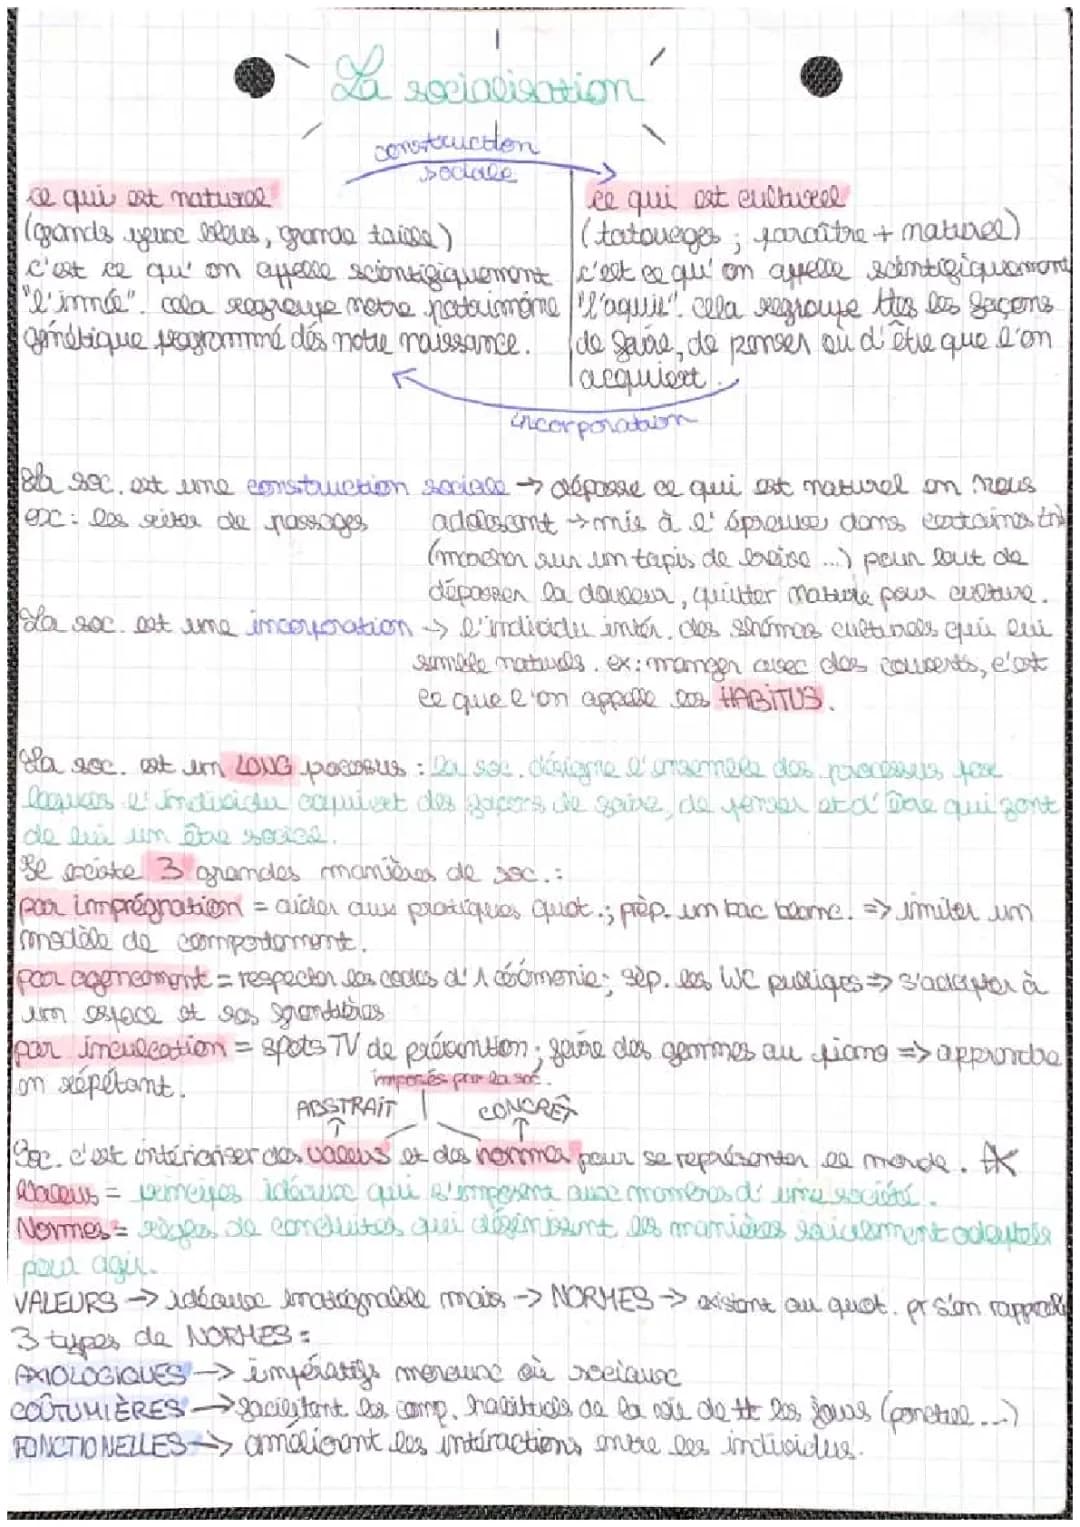 La socialisation
construction
sociale
ce qui est naturel
(grands yeux bleus, grande taille)
c'est ce qu'on appelle scientifiquement
"l'innée". cela regroupe notre patrimoine
génétique programmé dés notre naissance.
ce qui est culturel
(tatouages ; paraître + naturel)
c'est ce qu'on appelle scientifiquement
"l'aquis". cela regroupe ttes les façons
de faire, de penser ou d'être que l'on
acquiert.
incorporation
La soc. est une construction sociale → dépasse ce qui est naturel en nous
ex : les rites de passages
adolescent → mis à l'épreuve dans certaines
(marcher sur un tapis de braise ...) pour but de
dépasser la douleur, quitter nature pour culture.
La soc. est une incorporation → l'individu intér. des shémas culturels qui lui
semble naturels. ex : manger avec des couverts, c'est
ce que l'on appelle les HABITUS.
La soc. est un LONG processus : la soc. désigne l'ensemble des processus par
lequels l'individu acquiert des façons de faire, de penser et d'être qui font
de lui un être social.
Il existe 3 grandes manières de soc. :
par imprégnation = aider aux pratiques quot. ; prép. un bac blanc. => imiter un
modèle de comportement.
par agencement = respecter les codes d'1 cérémonie ; sép. les WC publiques => s'adapter à
un espace et ses frontières
par inculcation = spots TV de prévention ; faire des gammes au piano => apprendre
en répétant.
imposés par la soc.
ABSTRAIT
CONCRÊT
Soc. c'est intérioriser des valeurs et des normes pour se représenter le monde.
Valeurs = principes idéaux qui s'imposent aux membres d'une société.
Normes = règles de conduites qui définissent les manières socialement
pour agir.
VALEURS → idéaux inatteignable mais → NORMES → existant au quot. pr s'en
3 types de NORMES :
AXIOLOGIQUES → impératifs moraux où sociaux
COÛTUMIÈRES → facilitant les comp. habituels de la vie de tt les jours (ponctuel ...)
FONCTIONELLES → améliorant les intéractions entre les individus.